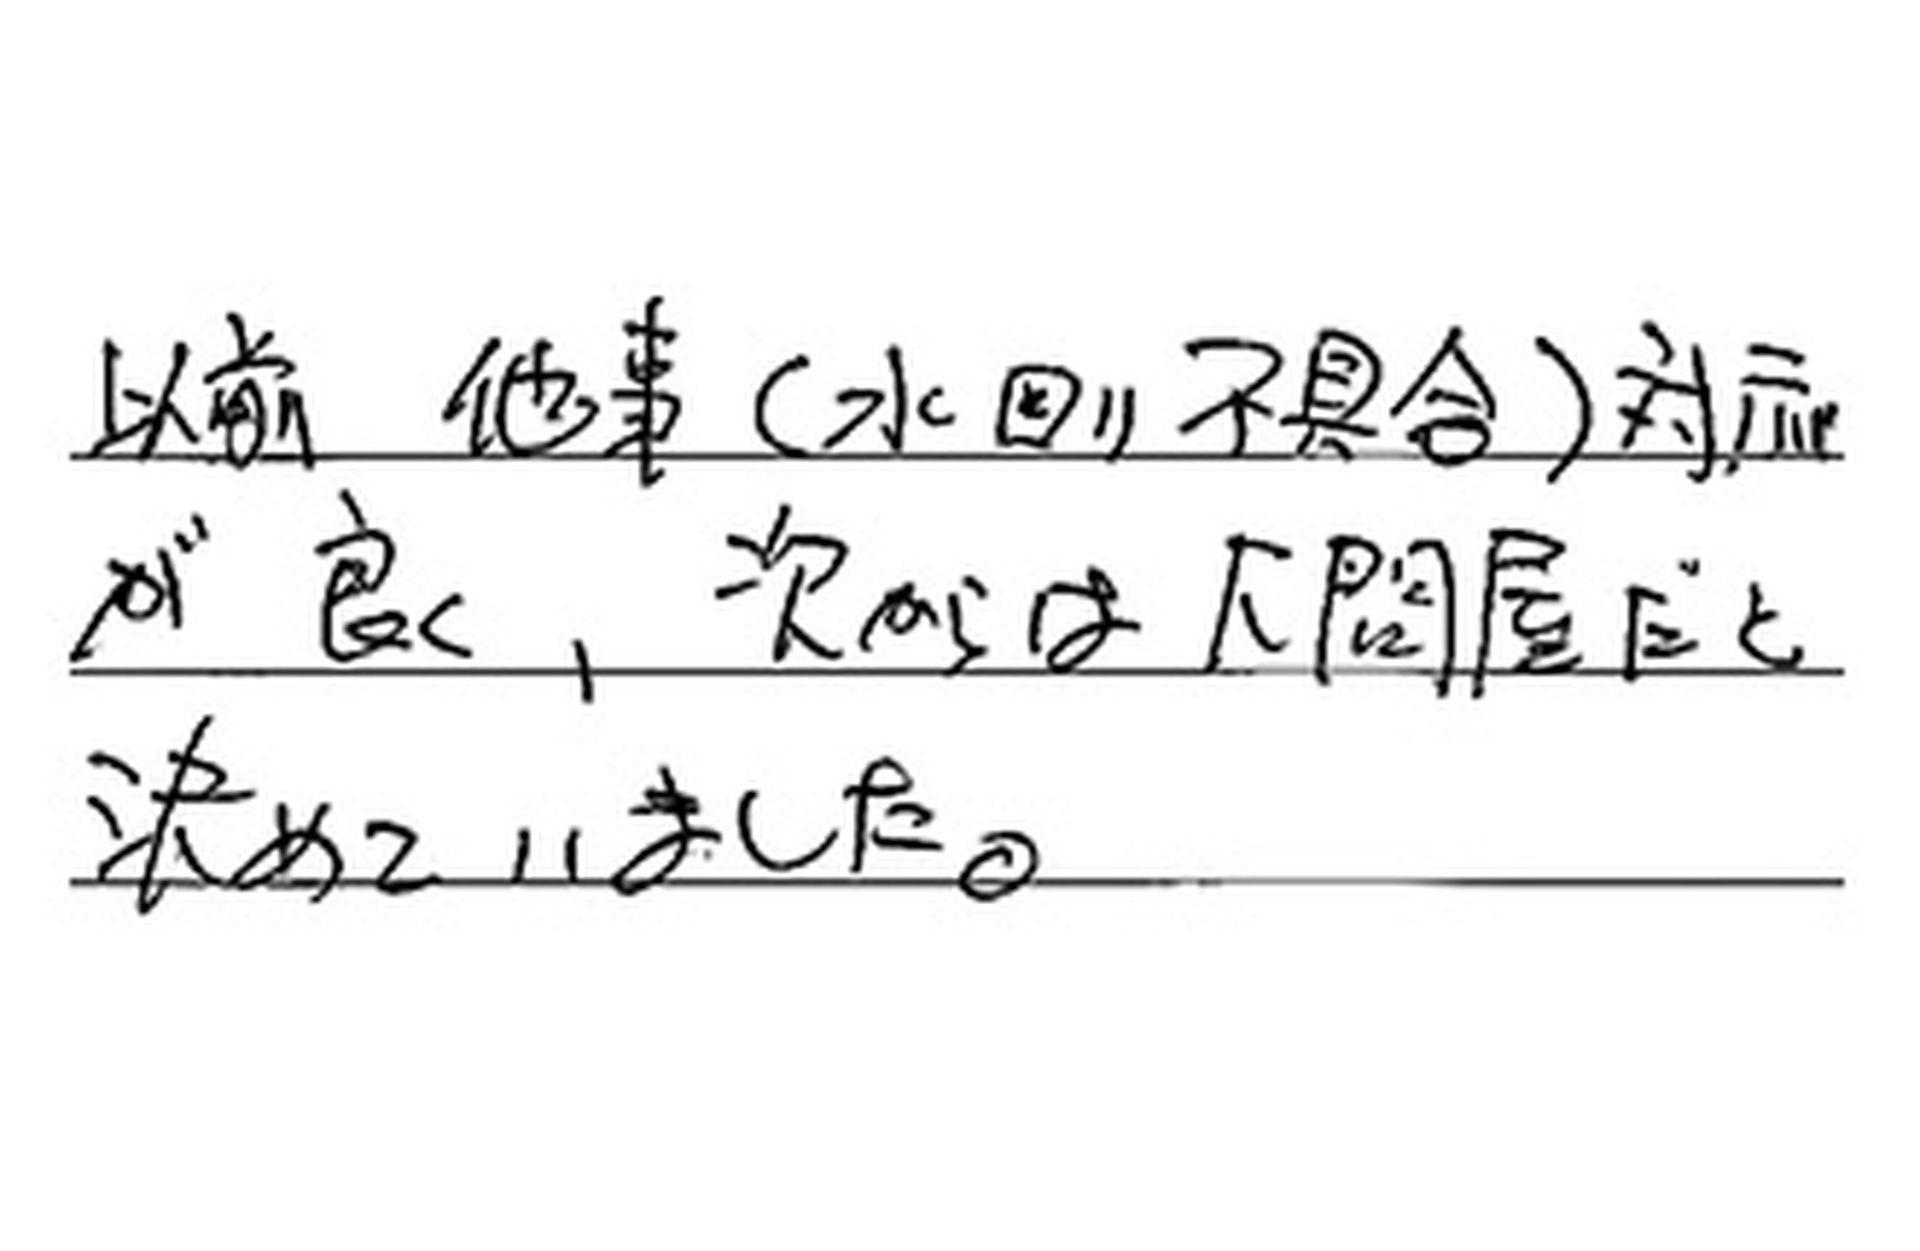 以前 他事(水回り不具合)対応
が良く、次からは だと
決めていました。